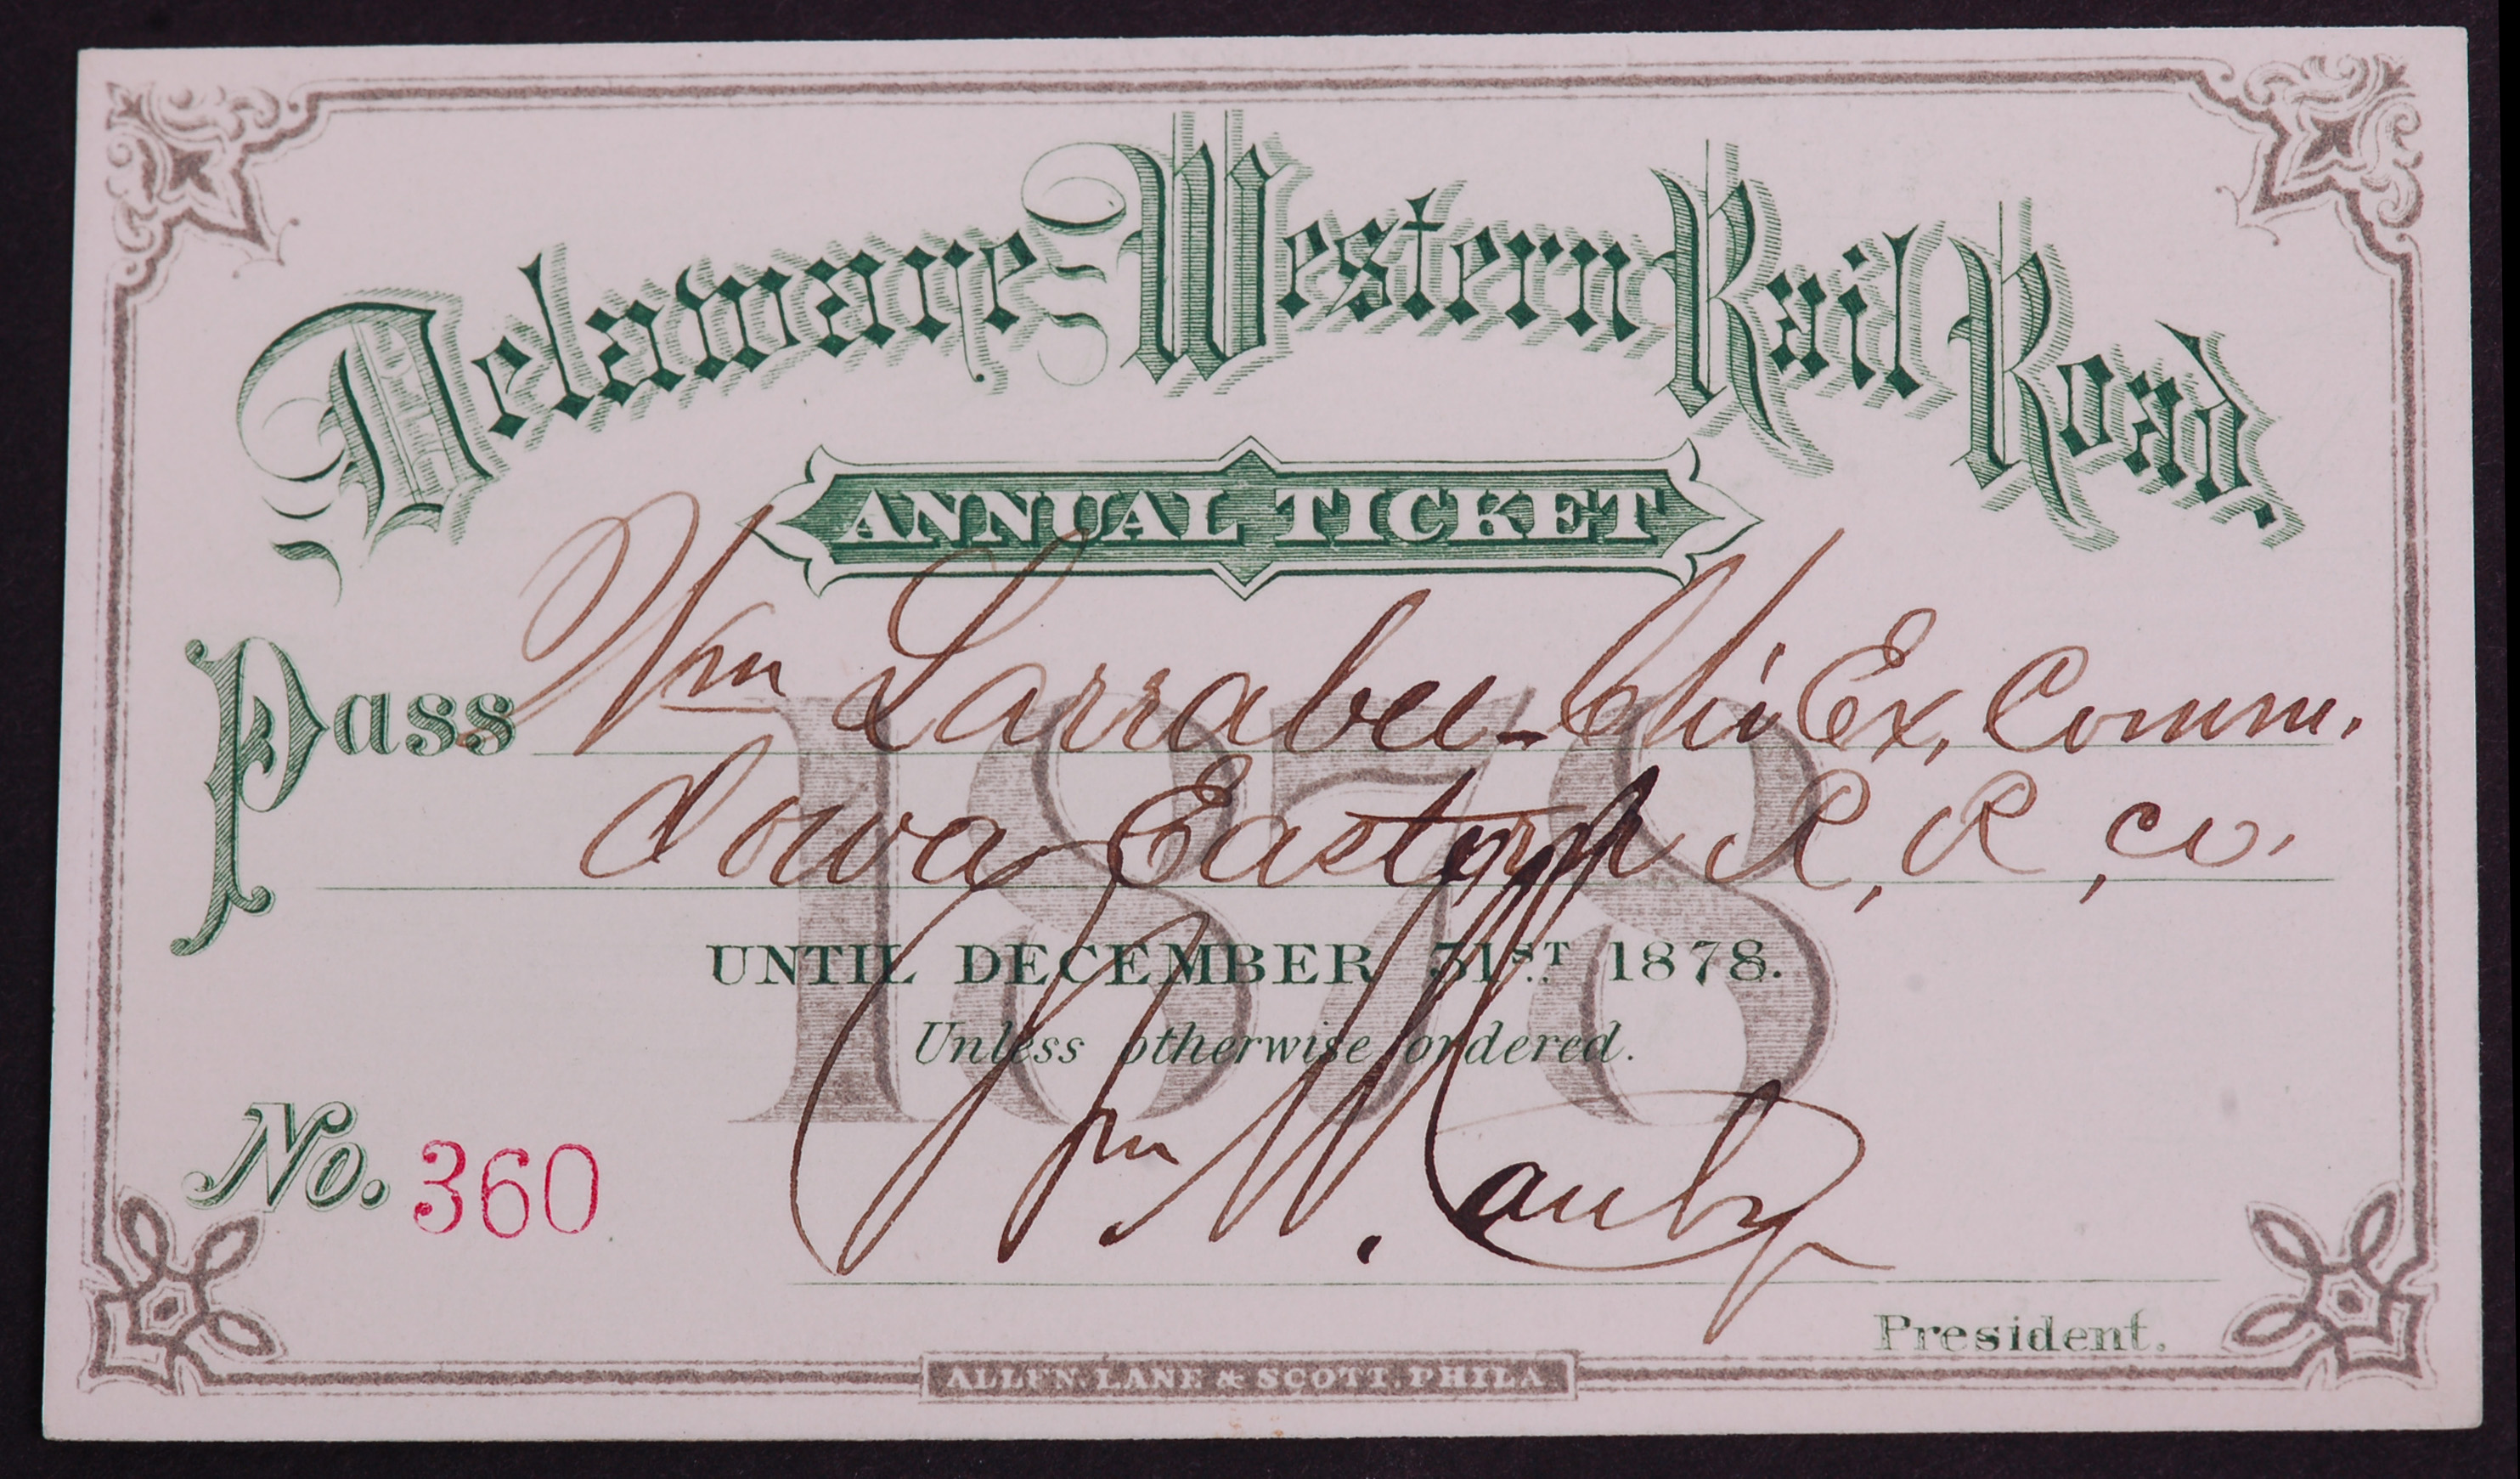 Delaware Western Rail Road.
ANNUAL TICKET
Pass Wm Larrabee - Chi Ex, Comm.
Iowa Eastern R, R, Co.
1878
UNTIL DECEMBER 31ST 1878.
Unless otherwise ordered.
No. 360
Wm M. Canby
President.
ALLEN, LANE & SCOTT, PHILA